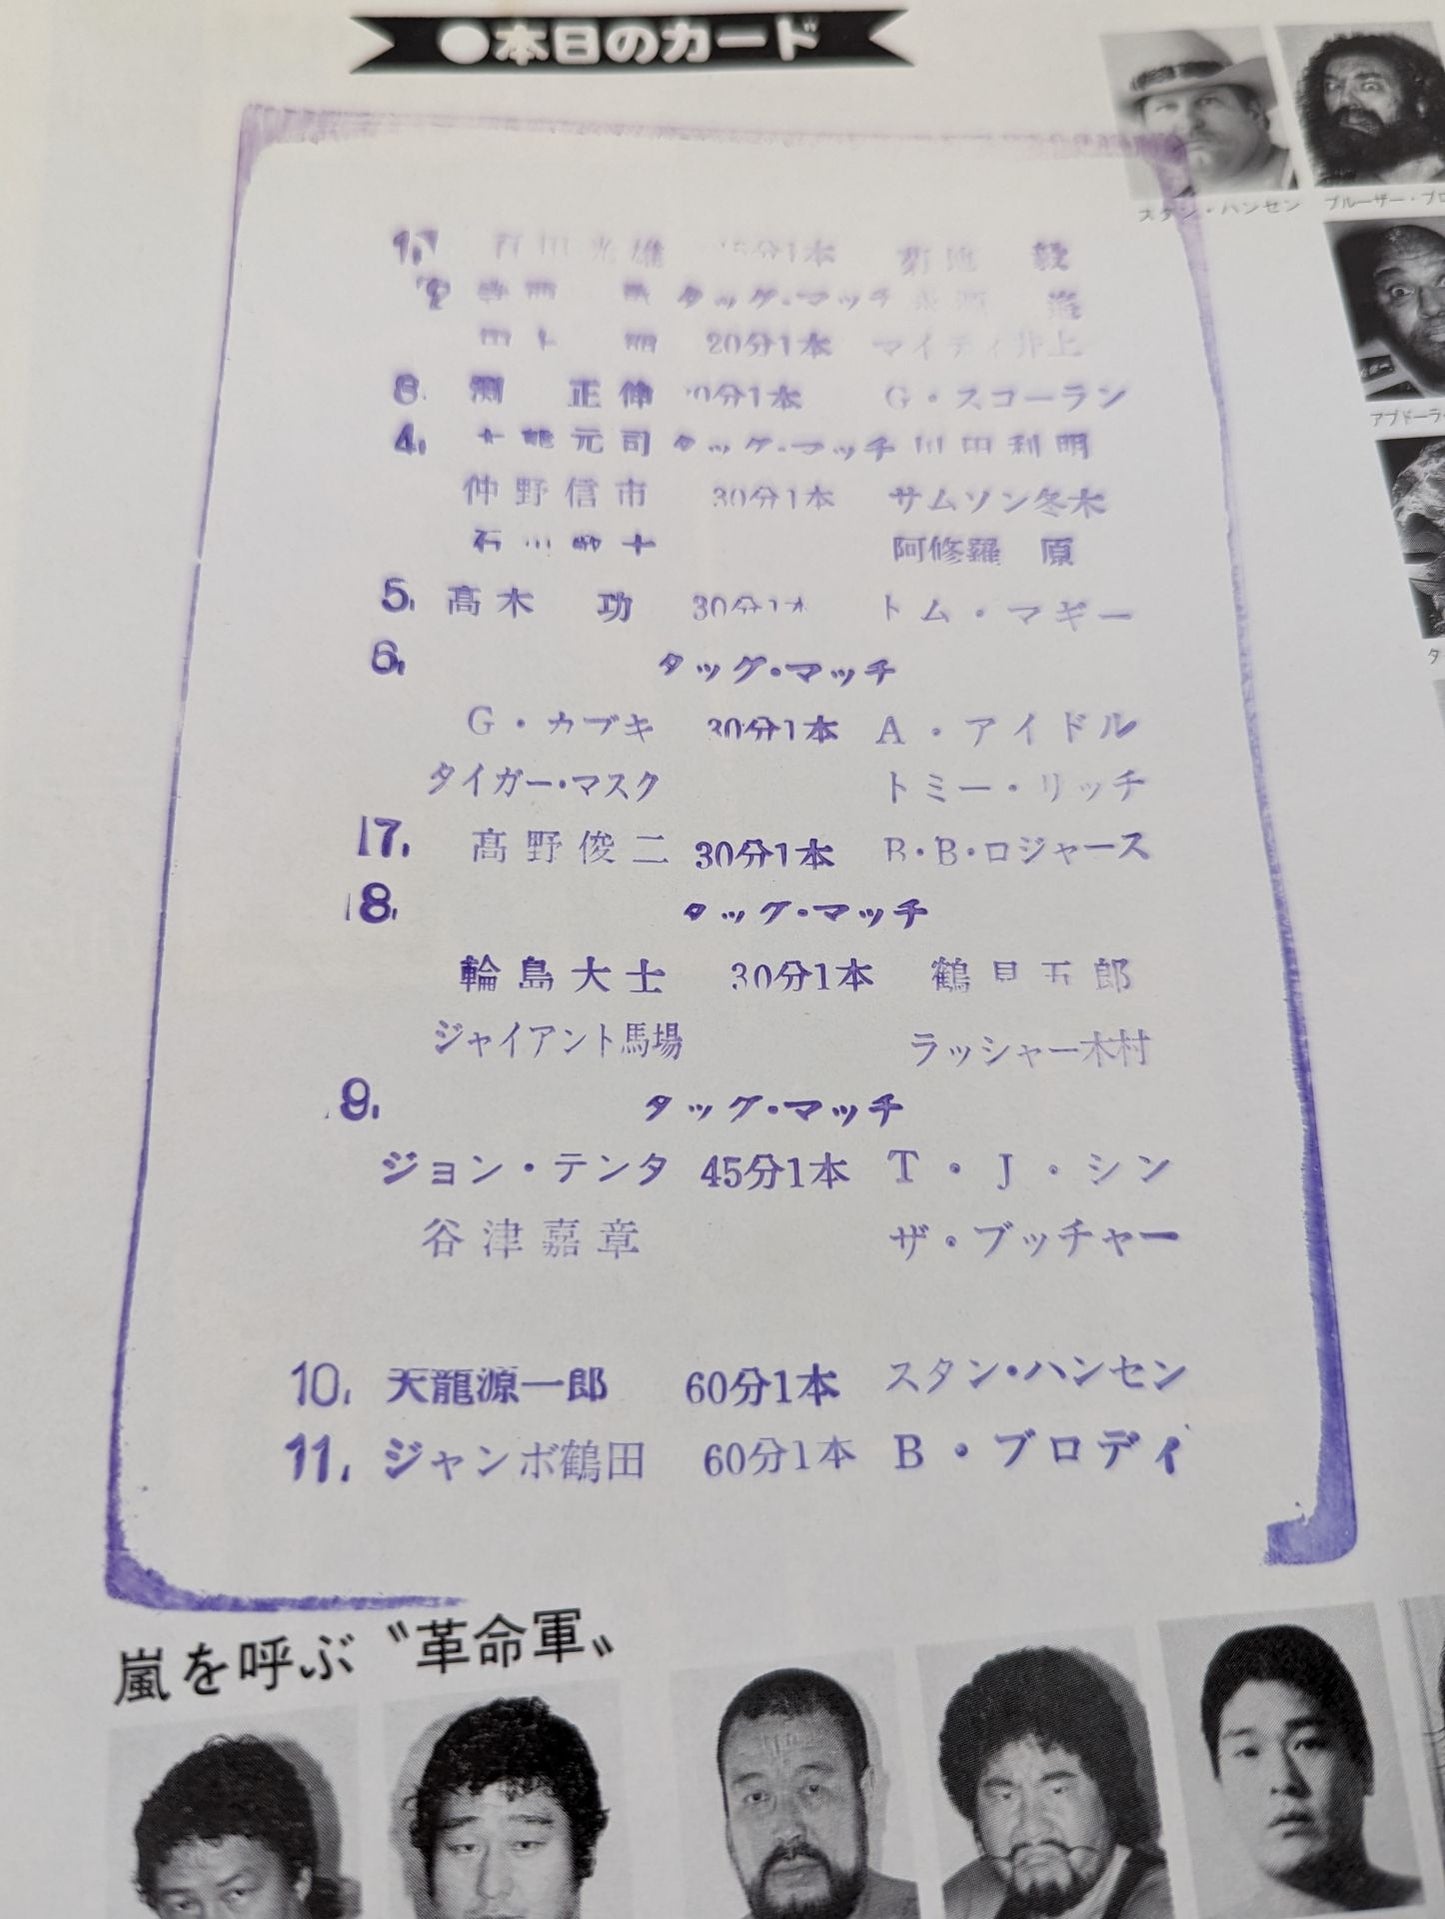 ●本日のカード
スタン・ハンセン
ブルーザー・ブロ
アブドーラ
タ
1. 百田光雄 15分1本 菊地 毅
2 タッグ・マッチ 永源 遙
20分1本 マイティ井上
3. 渕 正伸 30分1本 G・スコーラン
4. 大熊元司 タッグ・マッチ 川田利明
仲野信市 30分1本 サムソン冬木
石川敬士 阿修羅 原
5. 高木 功 30分1本 トム・マギー
6. タッグ・マッチ
G・カブキ 30分1本 A・アイドル
タイガー・マスク トミー・リッチ
7. 高野俊二 30分1本 B・B・ロジャース
8. タッグ・マッチ
輪島大士 30分1本 鶴見五郎
ジャイアント馬場 ラッシャー木村
9. タッグ・マッチ
ジョン・テンタ 45分1本 T・J・シン
谷津嘉章 ザ・ブッチャー
10. 天龍源一郎 60分1本 スタン・ハンセン
11. ジャンボ鶴田 60分1本 B・ブロディ
嵐を呼ぶ〝革命軍〟